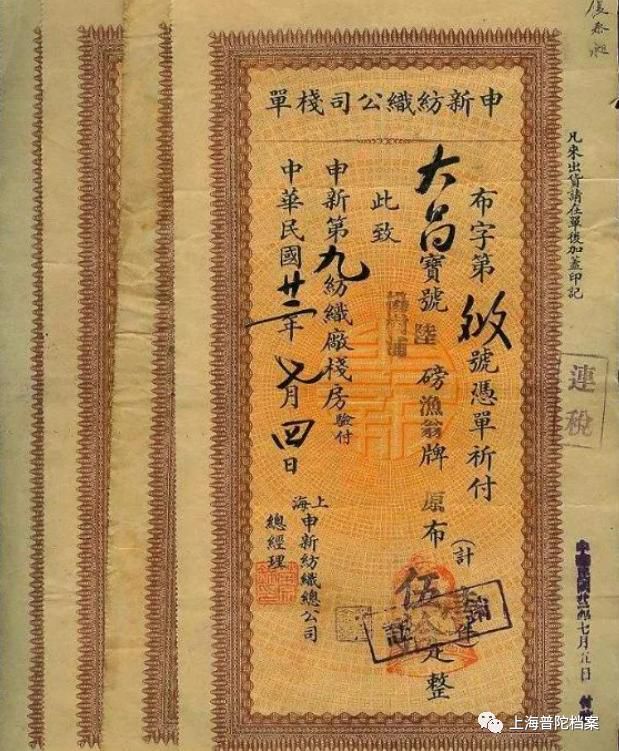 申新紡織公司棧單
凡來出貨請在單後加蓋印記
連稅
布字第 號憑單祈付
大昌寶號陸磅漁翁牌原布(計 伍 疋整
此致
申新第九紡織廠棧房驗付
中華民國廿二年七月四日
上海申新紡織總公司
總經理
七月五日
上海普陀档案